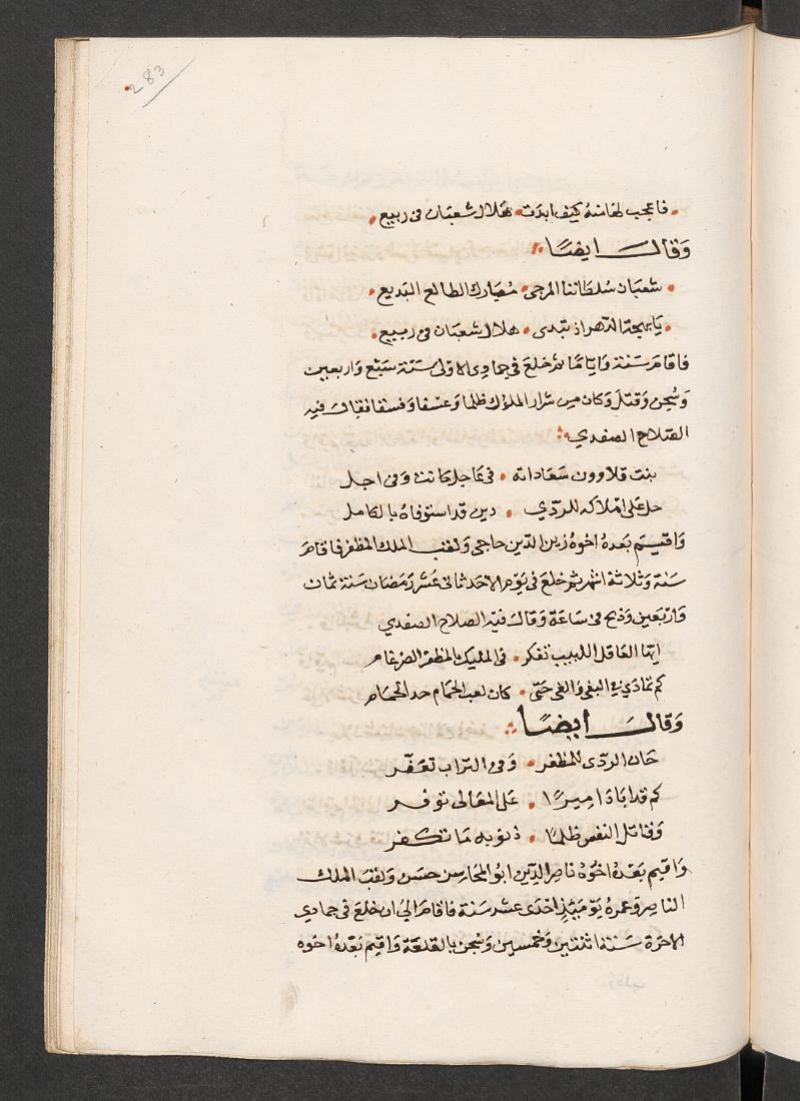 283
فاعجب لهاتنه كيف ابدت هلال شعبان فى ربيع
وقال ايضًا
شعبان سلطاننا المرجى مبارك الطالع البديع
يا بهجة الدهر اذ تبدى هلال شعبان فى ربيع
فاقام سنة واياما ثم خلع فى جمادى الاولى سنة سبع واربعين
وسجن وقتل وكان من شرار الملوك ظلما وعسفا وفسقا فقال فيه
الصلاح الصفدي
بنت قلاوون سعاداته فى عاجل كانت وفى اجل
حل على املاكه للردي دين قد استوفاه بالكامل
واقيم بعده اخوه زين الدين حاجى ولقب الملك المظفر فاقام
سنة وثلاثة اشهر ثم خلع فى يوم الاحد ثانى عشر رمضان سنة ثمان
واربعين وذبح فى ساعة وقال فيه الصلاح الصفدي
ايها العاقل اللبيب تفكر فى المليك المظفر الضرغام
كم تمادي فى البغى والغى حتى كان لعب الحمام حد الحمام
وقال ايضًا
حان الردى للمظفر وفى التراب تعفر
كم قد اباد اميرًا على المعالى توفر
وقاتل النفس ظلمًا ذنوبه ما تكفر
واقيم بعده اخوه ناصر الدين ابو المحاسن حسن ولقب الملك
الناصر وعمره يومئذ احدى عشر سنة فاقام الى ان خلع فى جمادي
الاخرة سنة اثنتين وخمسين وسجن بالقلعة واقيم بعده اخوه